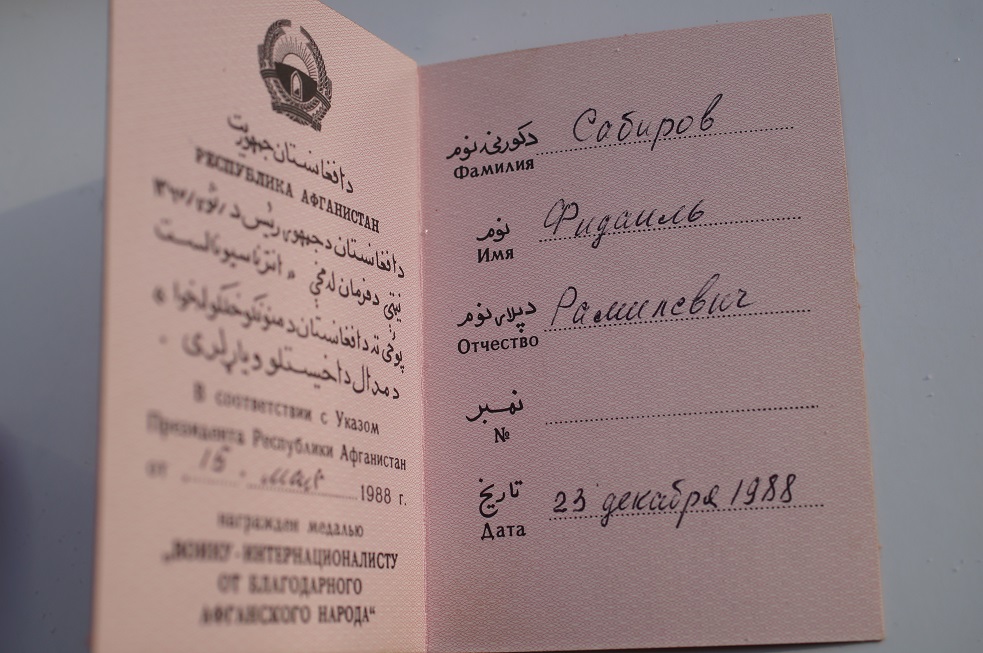 دافغانستان جمهوريت
РЕСПУБЛИКА АФГАНИСТАН
دافغانستان دجمهوري رئيس د
نيټې دفرمان له مخې " انترناسيونالست
د مدال داخيستلو وياړلری
В соответствии с Указом
Президента Республики Афганистан
от 15. мая 1988 г.
награжден медалью
„ВОИНУ-ИНТЕРНАЦИОНАЛИСТУ
ОТ БЛАГОДАРНОГО
АФГАНСКОГО НАРОДА“
دکورنۍ نوم
Фамилия Сабиров
نوم
Имя Фидаиль
دپلار نوم
Отчество Рамилевич
نمبر
№
تاريخ
Дата 23 декабря 1988